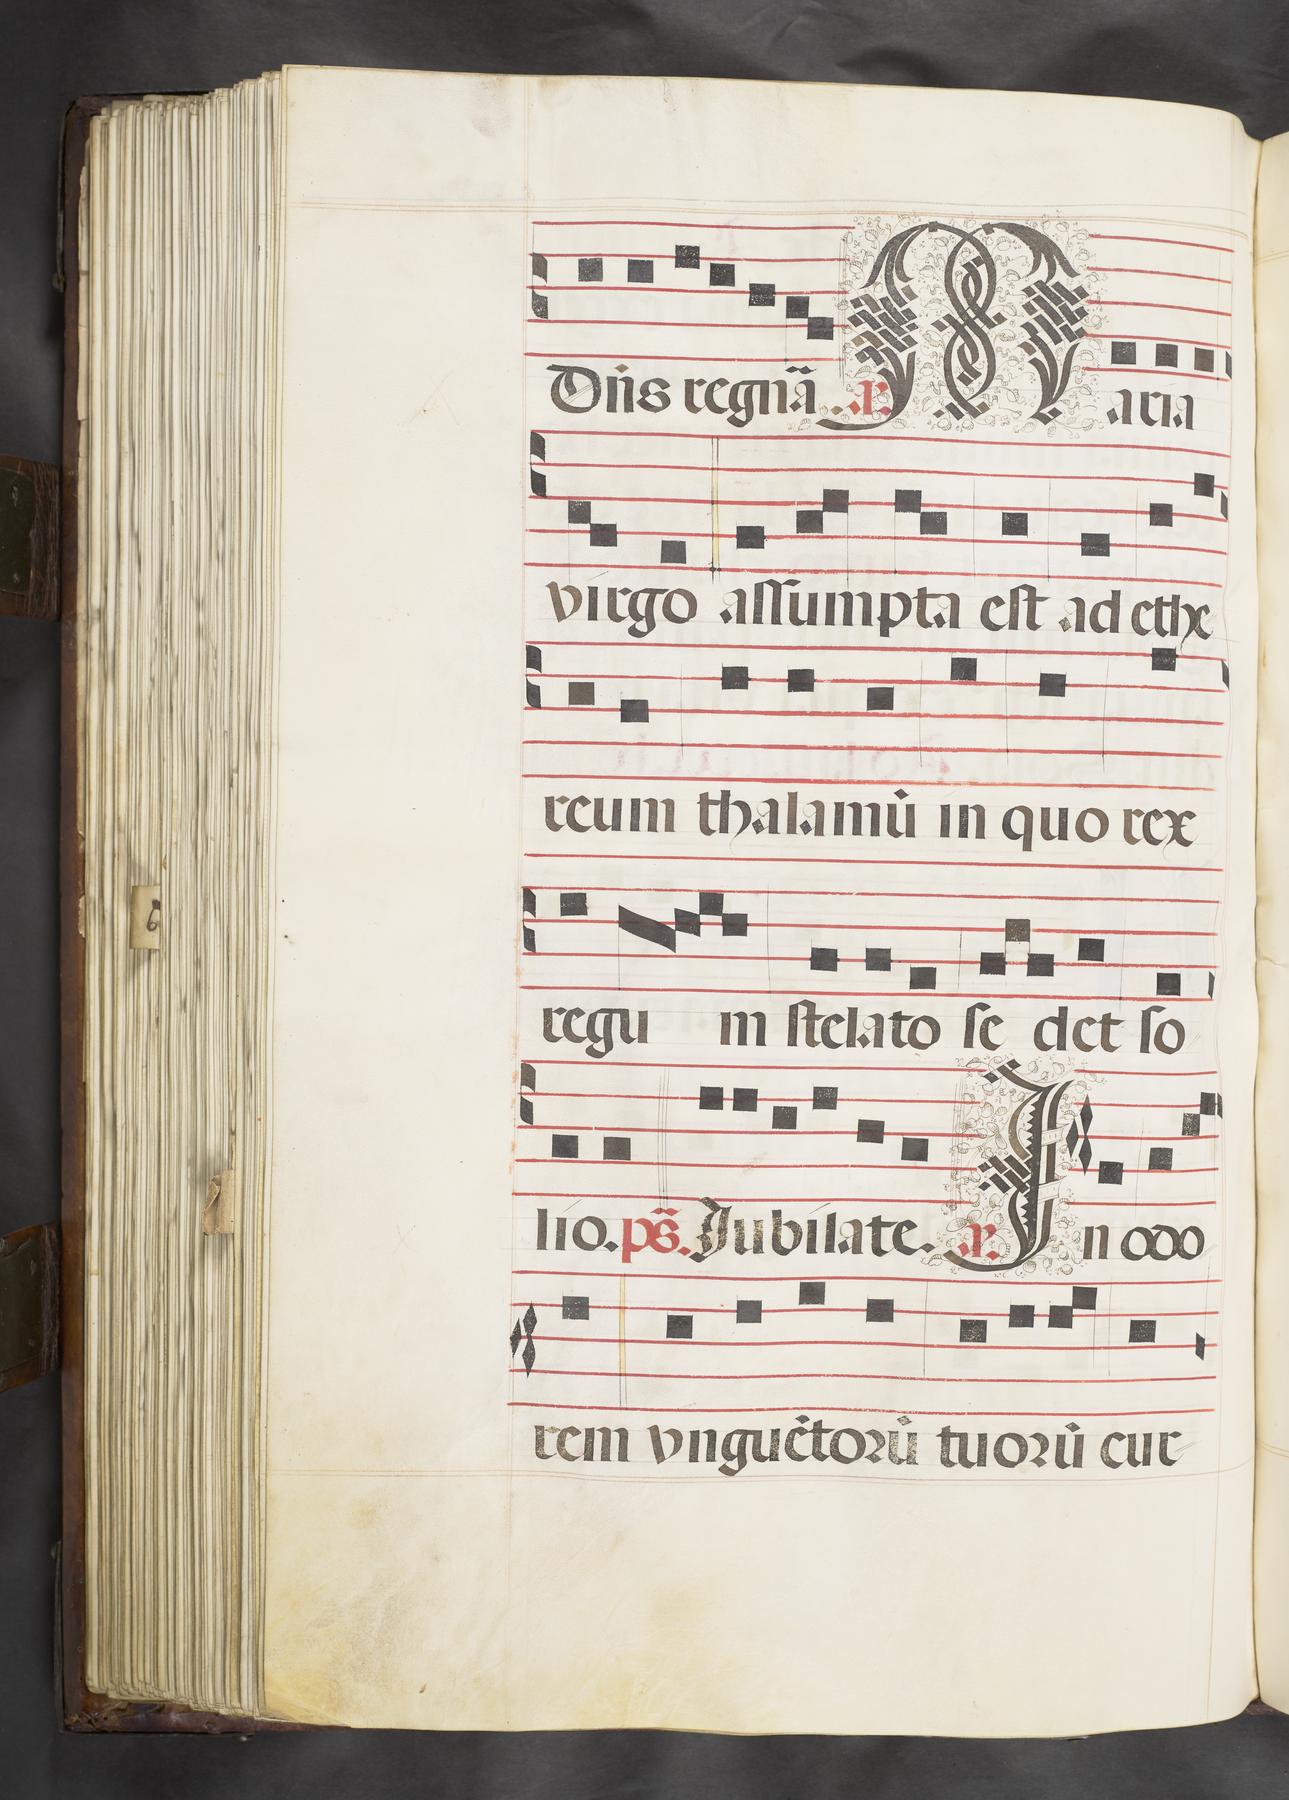 Dn̄s regnā. .r. Maria
virgo assumpta est ad ethe
reum thalamū in quo rex
regu in stelato se det so
lio. ps̄. Jubilate. .r. In odo
rem vnguētorū tuorū cur
6